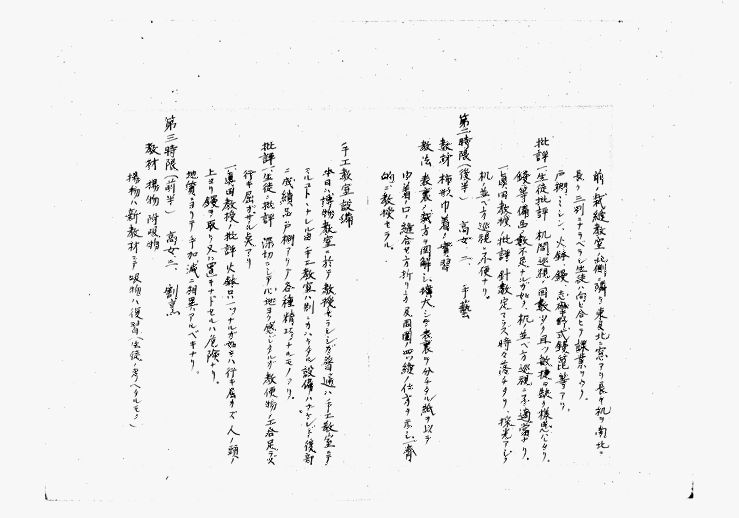 前ノ裁縫教室ノ北側ニ隣リ東及北ニ窓アリ長キ机ヲ南北ニ
長ク三列ニナラベテ生徒ハ向ヒ合ヒテ課業ヲウク。
戸棚ミシン、火鉢、鏝、志野式鏝琵等アリ
批評 一、生徒ノ批評 机間巡視ノ回数少ク且ツ敏捷ヲ缺ク様思ハレタリ、
鏝等備品数不足ナルガ如シ 机ノ並ベ方巡視ニ不適当ナリ。
一、眞田教授ノ批評 針数定マラズ時々落チタリ、採光アシク
机ノ並ベ方巡視ニ不便ナリ。
第二時限(後半) 高女二、手藝
教材 柿形巾着ノ實習
教法 表裏ノ裁方ヲ図解シ擴大シテ表裏ヲ分チタル紙ヲ以テ
巾着ノ口ノ縫合セ方折リ方及周囲ノ四ツ縫ノ仕方ヲ示シ一齊
的ニ教授セラル。
手工教室設備
本日ハ博物教室ニ於テ教授セラレシガ普通ハ手工教室ニテ
スルコトヽナレル由手工教室ハ別ニカハリタル設備ハナケレド後部
ニ成績品戸棚アリテ各種精巧ナルモノアリ。
批評 一、生徒ノ批評 深切ニシテ心地ヨク感ジタルガ教便物ノ工合足ラズ
行キ届カザル点アリ
一、眞田教授ノ批評 火鉢只一ツナルガ如キハ行キ届カズ 人ノ頭ノ
上ヨリ鏝ヲ取リ又ハ置キナドセシハ危険ナリ。
地質ニヨリテ手加減ニ相異アルベキナリ。
第三時限(前半) 高女三、割烹
教材 揚物 附吸物
揚物ハ新教材ニテ吸物ハ復習(生徒ノ考ヘタルモノ)